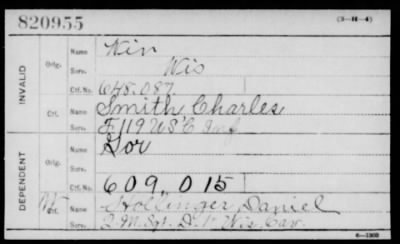 820955 (3-H-4)
INVALID
Orig. Name
Serv. Wis
Ctf. No. 648.087
Ctf. Name Smith Charles
Serv. F 119 U S C Inf
DEPENDENT
Orig. Name Gor
Serv.
Ctf. No. 609,015
Ctf. Name Hollinger Daniel
Serv. 2 M. Sgt. D. 1st Wis. Cav.